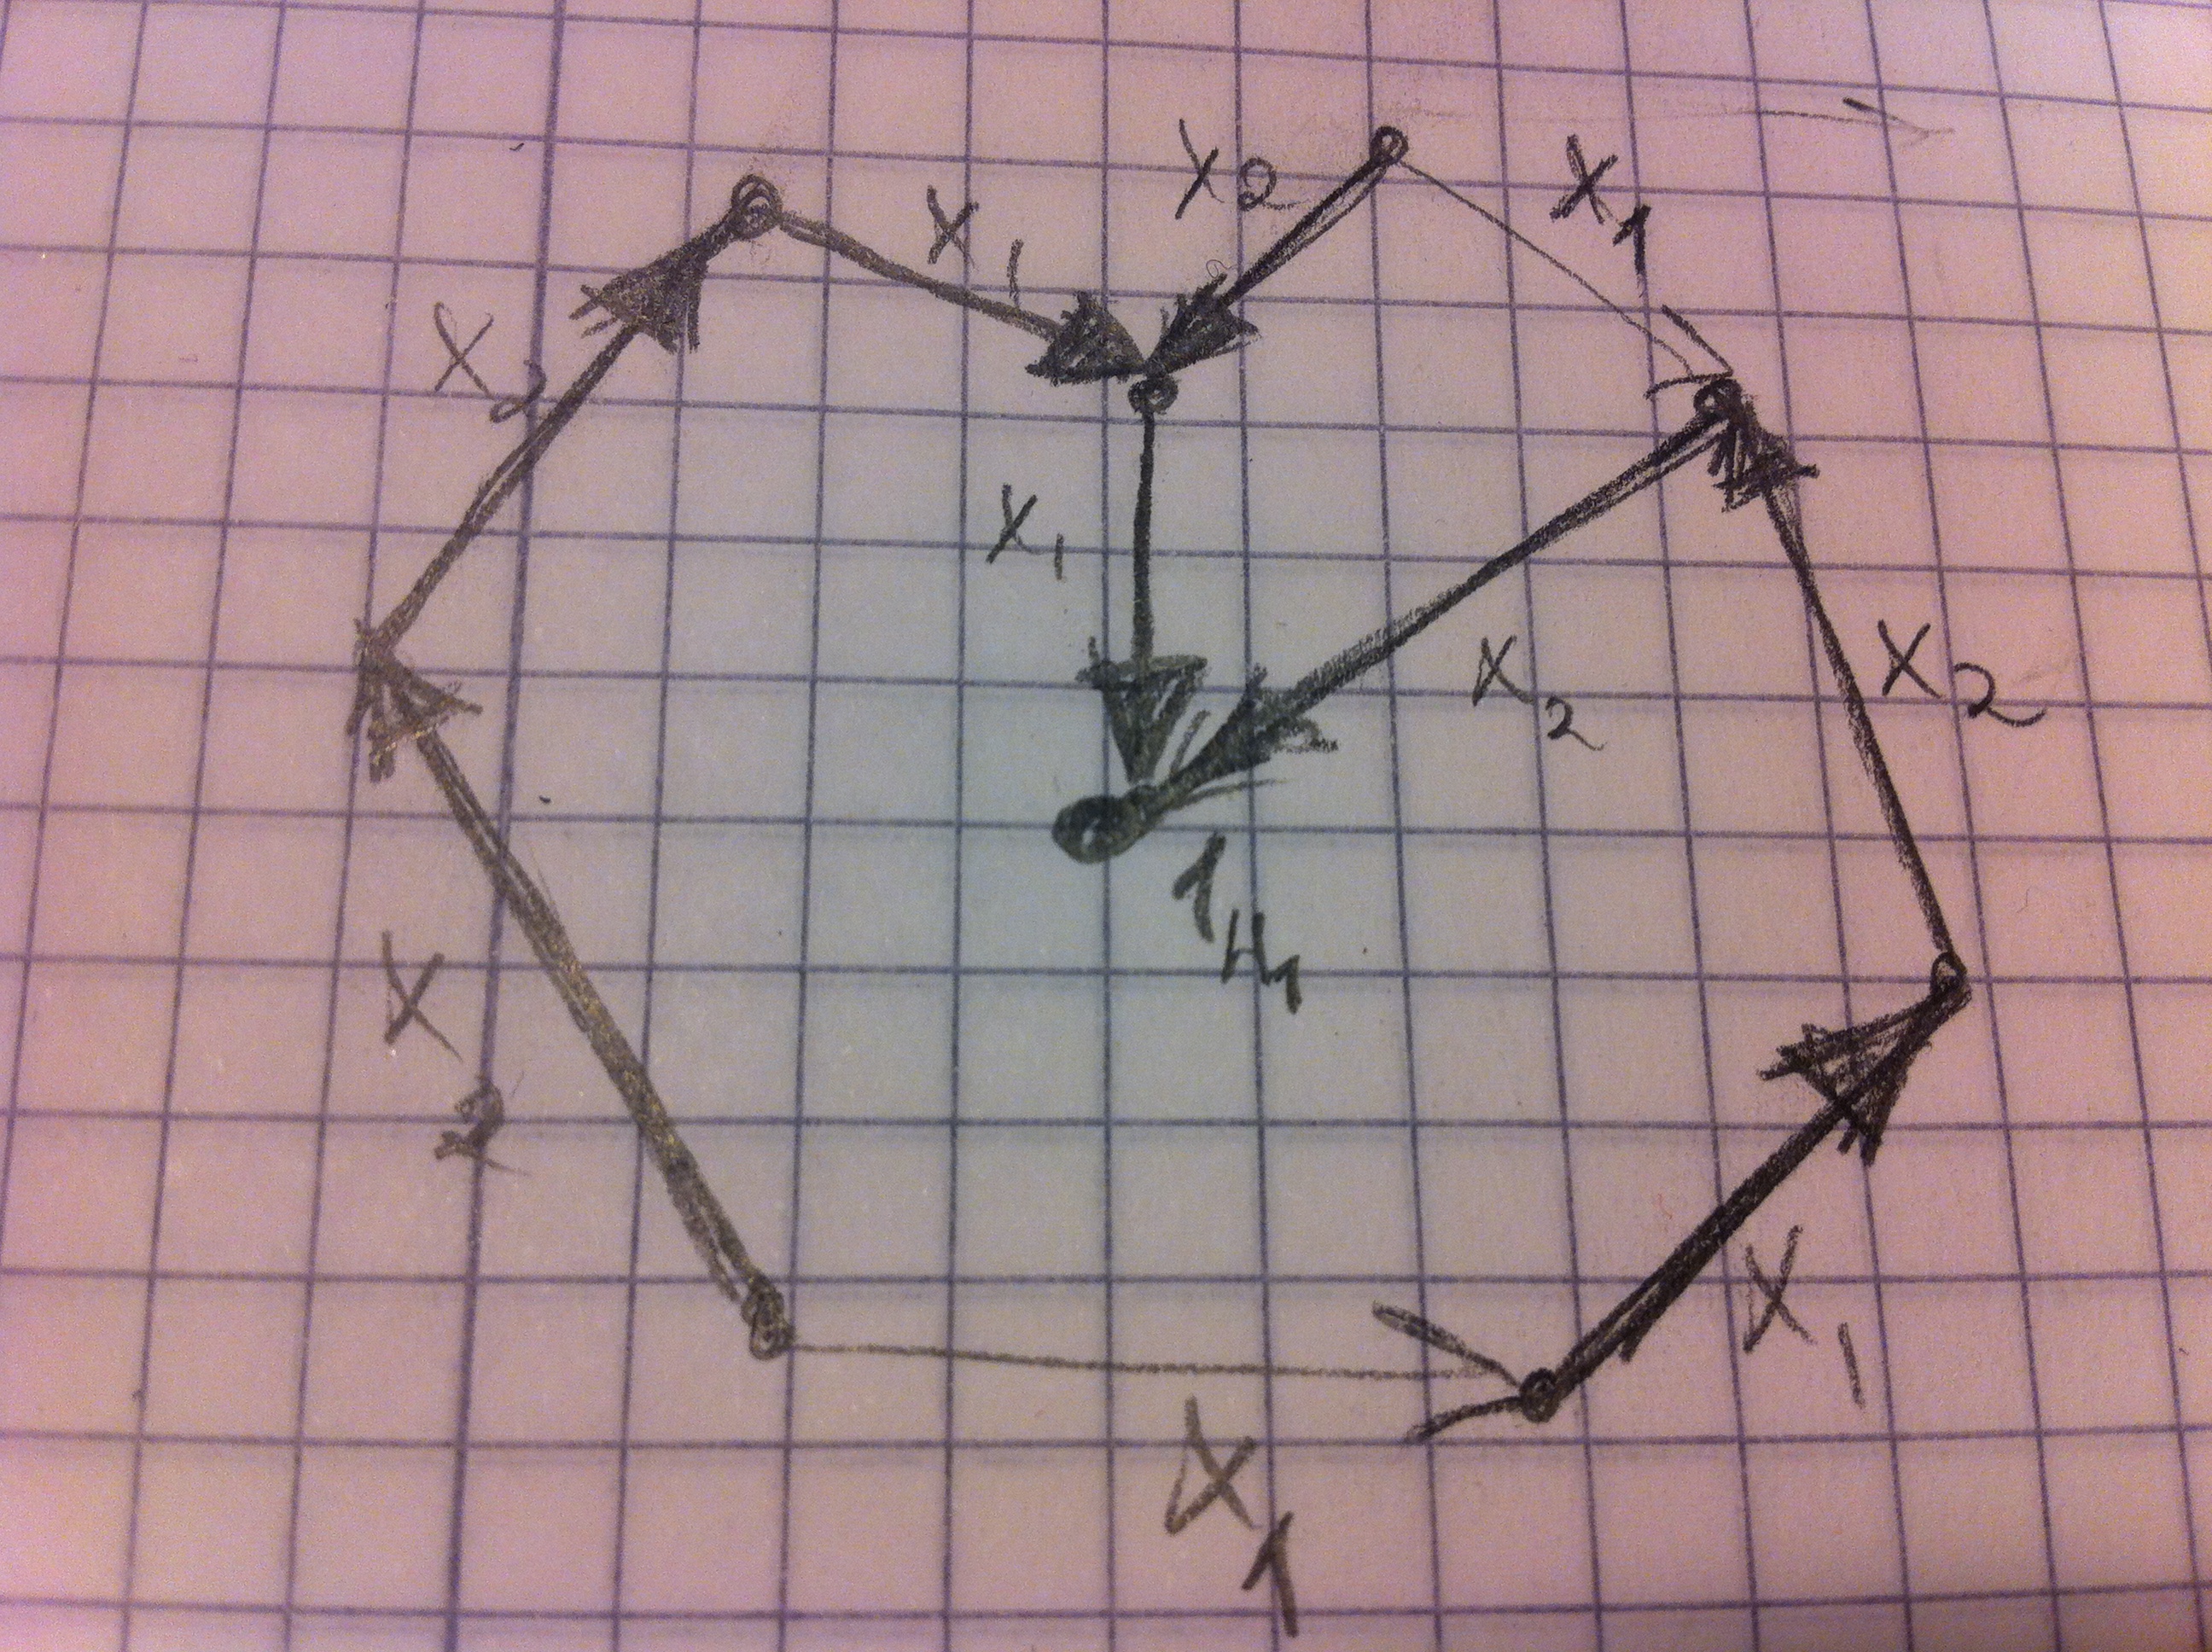 x2
x1
x1
x2
x1
x2
x2
1H1
x2
x1
x1